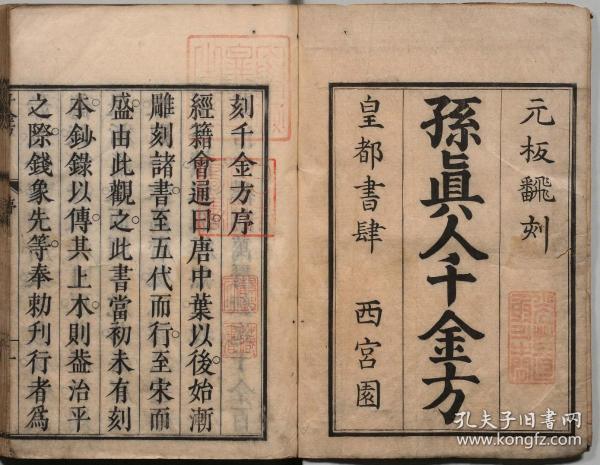 元板飜刻
孫眞人千金方
皇都書肆 西宮園
刻千金方序
經籍會通曰唐中葉以後始漸
雕刻諸書至五代而行至宋而
盛由此觀之此書當初未有刻
本鈔錄以傳其上木則葢治平
之際錢象先等奉勅刊行者爲
孔夫子旧书网
www.kongfz.com